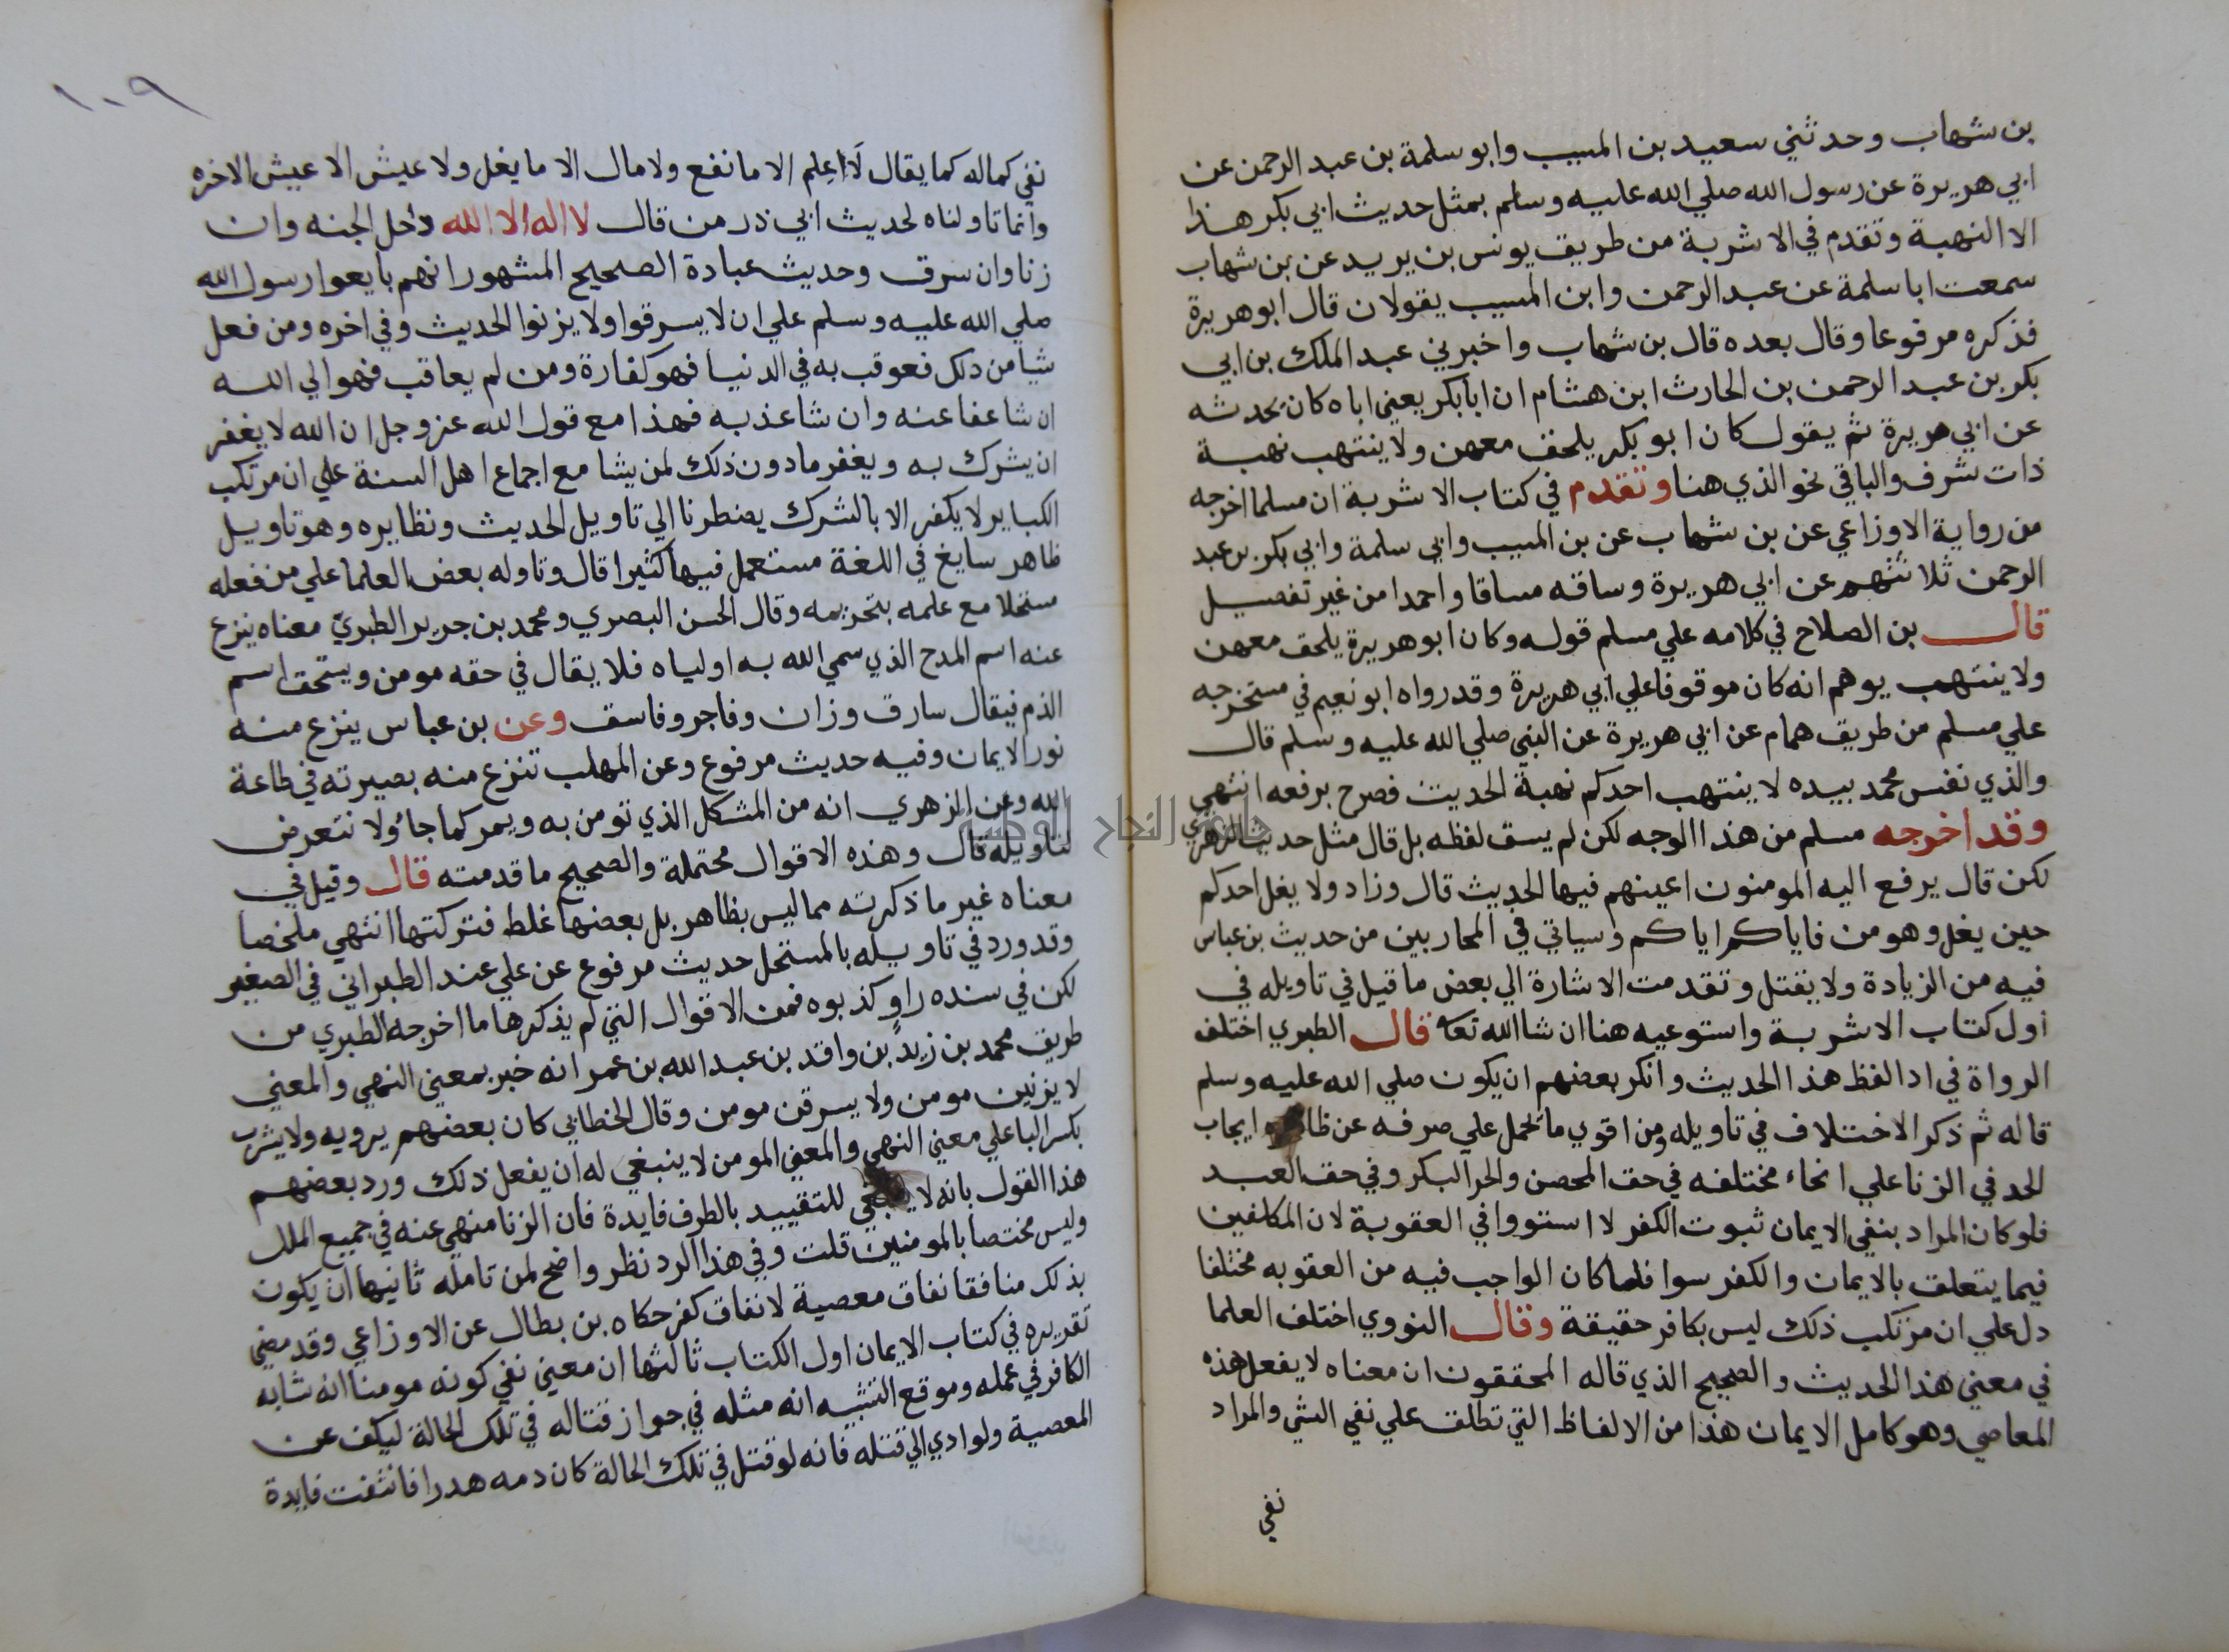 بن شهاب وحدثني سعيد بن المسيب وابو سلمة بن عبد الرحمن عن
ابي هريرة عن رسول الله صلي الله عليه وسلم بمثل حديث ابي بكر هذا
الا النهبة وتقدم في الاشربة من طريق يونس بن يريد عن بن شهاب
سمعت ابا سلمة عن عبد الرحمن وابن المسيب يقولان قال ابو هريرة
فذكره مرفوعا وقال بعده قال بن شهاب واخبرني عبد الملك بن ابي
بكر بن عبد الرحمن بن الحارث ابن هشام ان ابا بكر يعني اباه كان يحدثه
عن ابي هريرة ثم يقول كان ابو بكر يلحق معهن ولا ينتهب نهبة
ذات شرف والباقي نحو الذي هنا وتقدم في كتاب الاشربة ان مسلما اخرجه
من رواية الاوزاعي عن بن شهاب عن بن المسيب وابي سلمة وابي بكر بن عبد
الرحمن ثلاثتهم عن ابي هريرة وساقه مساقا واحدا من غير تفصيل
قال بن الصلاح في كلامه علي مسلم قوله وكان ابو هريرة يلحق معهن
ولا ينتهب يوهم انه كان موقوفا علي ابي هريرة وقد رواه ابو نعيم في مستخرجه
علي مسلم من طريق همام عن ابي هريرة عن النبي صلي الله عليه وسلم قال
والذي نفس محمد بيده لا ينتهب احدكم نهبة الحديث فصرح برفعه انتهي
وقد اخرجه مسلم من هذا الوجه لكن لم يسق لفظه بل قال مثل حديث الزهري
لكن قال يرفع اليه المومنون اعينهم فيها الحديث قال وزاد ولا يغل احدكم
حين يغل وهو من فاياكم اياكم وسياتي في المحاربين من حديث بن عباس
فيه من الزيادة ولا يقتل وتقدمت الاشارة الي بعض ما قيل في تاويله في
اول كتاب الاشربة واستوعيه هنا ان شا الله تعا قال الطبري اختلف
الرواة في ادا لفظ هذا الحديث وانكر بعضهم ان يكون صلي الله عليه وسلم
قاله ثم ذكر الاختلاف في تاويله ومن اقوي ما يحمل علي صرفه عن ايجاب
الحد في الزنا علي انحاء مختلفه في حق المحصن والحر البكر وفي حق العبد
فلو كان المراد بنفي الايمان ثبوت الكفر لا استووا في العقوبة لان المكلفين
فيما يتعلق بالايمان والكفر سوا فلما كان الواجب فيه من العقوبه مختلفا
دل علي ان مرتكب ذلك ليس بكافر حقيقة وقال النووي اختلف العلما
في معني هذا الحديث والصحيح الذي قاله المحققون ان معناه لا يفعل هذه
المعاصي وهو كامل الايمان هذا من الالفاظ التي تطلق علي نفي الشي والمراد
نفي
١٠٩
نفي كماله كما يقال لا علم الا ما نفع ولا مال الا ما يغل ولا عيش الا عيش الاخره
وانما تاولناه لحديث ابي ذر من قال لا اله الا الله دخل الجنه وان
زنا وان سرق وحديث عبادة الصحيح المشهور انهم بايعوا رسول الله
صلي الله عليه وسلم علي ان لا يسرقوا ولا يزنوا الحديث وفي اخره ومن فعل
شيا من ذلك فعوقب به في الدنيا فهو كفارة ومن لم يعاقب فهو الي الله
ان شا عفا عنه وان شا عذبه فهذا مع قول الله عز وجل ان الله لا يغفر
ان يشرك به ويغفر ما دون ذلك لمن يشا مع اجماع اهل السنة علي ان مرتكب
الكباير لا يكفر الا بالشرك يضطرنا الي تاويل الحديث ونظايره وهو تاويل
ظاهر سايغ في اللغة مستعمل فيها كثيرا قال وتاوله بعض العلما علي من فعله
مستحلا مع علمه بتحريمه وقال الحسن البصري ومحمد بن جرير الطبري معناه ينزع
عنه اسم المدح الذي سمي الله به اولياه فلا يقال في حقه مومن ويستحق اسم
الذم فيقال سارق وزان وفاجر وفاسق وعن بن عباس ينزع منه
نور الايمان وفيه حديث مرفوع وعن المهلب تنزع منه بصيرته في طاعة
الله وعن الزهري انه من المشكل الذي نومن به ويمر كما جا ولا نتعرض
لتاويله قال وهذه الاقوال محتملة والصحيح ما قدمته قال وقيل في
معناه غير ما ذكرته مما ليس بظاهر بل بعضها غلط فتركتها انتهي ملخصا
وقد ورد في تاويله بالمستحل حديث مرفوع عن علي عند الطبراني في الصغير
لكن في سنده راو كذبوه فمن الاقوال التي لم يذكرها ما اخرجه الطبري من
طريق محمد بن زيد بن واقد بن عبد الله بن عمر انه خبر بمعني النهي والمعني
لا يزنين مومن ولا يسرقن مومن وقال الخطابي كان بعضهم يرويه ولا يشرب
بكسر البا علي معني النهي والمعني المومن لا ينبغي له ان يفعل ذلك ورد بعضهم
هذا القول بانه لا يبقي للتقييد بالظرف فايدة فان الزنا منهي عنه في جميع الملل
وليس مختصا بالمومنين قلت وفي هذا الرد نظر واضح لمن تامله ثانيها ان يكون
بذلك منافقا نفاق معصية لا نفاق كفر حكاه بن بطال عن الاوزاعي وقد مضي
تقريره في كتاب الايمان اول الكتاب ثالثها ان معني نفي كونه مومنا انه شابه
الكافر في عمله وموقع التشبيه انه مثله في جواز قتاله في تلك الحالة ليكف عن
المعصية ولو ادي الي قتله فانه لو قتل في تلك الحالة كان دمه هدرا فانتفت فايدة
جامعة النجاح الوطنية